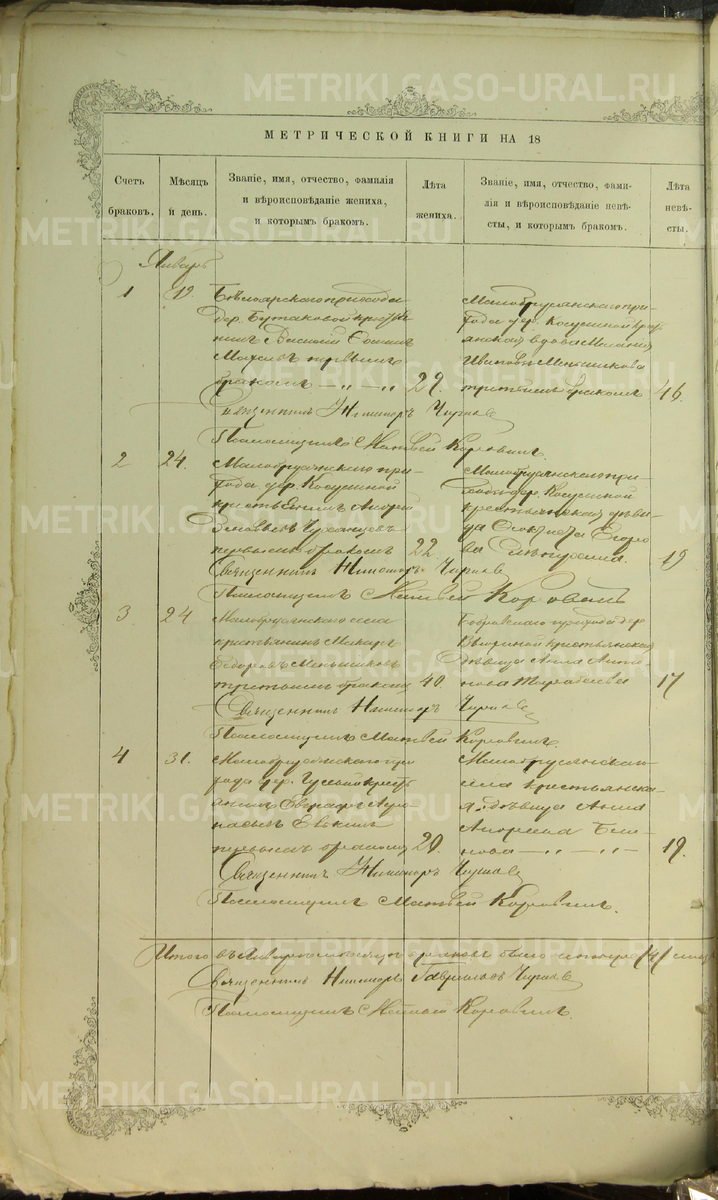 METRIKI.GASO-URAL.RU
МЕТРИЧЕСКОЙ КНИГИ НА 18
Счетъ браковъ.
Мѣсяцъ и день.
Званіе, имя, отчество, фамилія и вѣроисповѣданіе жениха, и которымъ бракомъ.
Лѣта жениха.
Званіе, имя, отчество, фамилія и вѣроисповѣданіе невѣсты, и которымъ бракомъ.
Лѣта невѣсты.
Январь
1
19.
Бѣлоярскаго прихода
дер. Бутаковой кресть
янинъ Василій
первымъ
бракомъ — „ — „
29.
Малобрусянскаго при-
хода дер. Косулиной крес
янская вдова
Иванова Меньшикова
третьимъ бракомъ
46.
Священникъ Никаноръ Чирьевъ
Псаломщикъ Матвей Коровинъ.
2
24.
Малобрусянскаго при-
хода дер. Косулиной
крестьянинъ Андрей
Зиновьевъ
первымъ бракомъ
22
Малобрусянскаго при-
хода дер. Косулиной
крестьянская дѣви-
ца Егоро
ва
19
Священникъ Никаноръ Чирьевъ
Псаломщикъ Матвей Коровинъ
3
24
Малобрусянскаго села
крестьянинъ Макаръ
Ѳедоровъ Меньшиковъ
третьимъ бракомъ
40.
прихода дер.
крестьянская
дѣвица Анна Анти
нова
17
Священникъ Никаноръ Чирьевъ
Псаломщикъ Матвей Коровинъ.
4
31.
Малобрусянскаго при
хода дер. Гусевой кресть
янинъ Евграфъ
первымъ бракомъ
20.
Малобрусянскаго
села крестьянска-
я дѣвица Анна
Андреева
нова — „ — „ —
19.
Священникъ Никаноръ Чирьевъ
Псаломщикъ Матвей Коровинъ.
Итого въ Январѣ мѣсяцѣ браковъ было четыре /4/
Священникъ Никаноръ Гавриловъ Чирьевъ
Псаломщикъ Матвей Коровинъ.